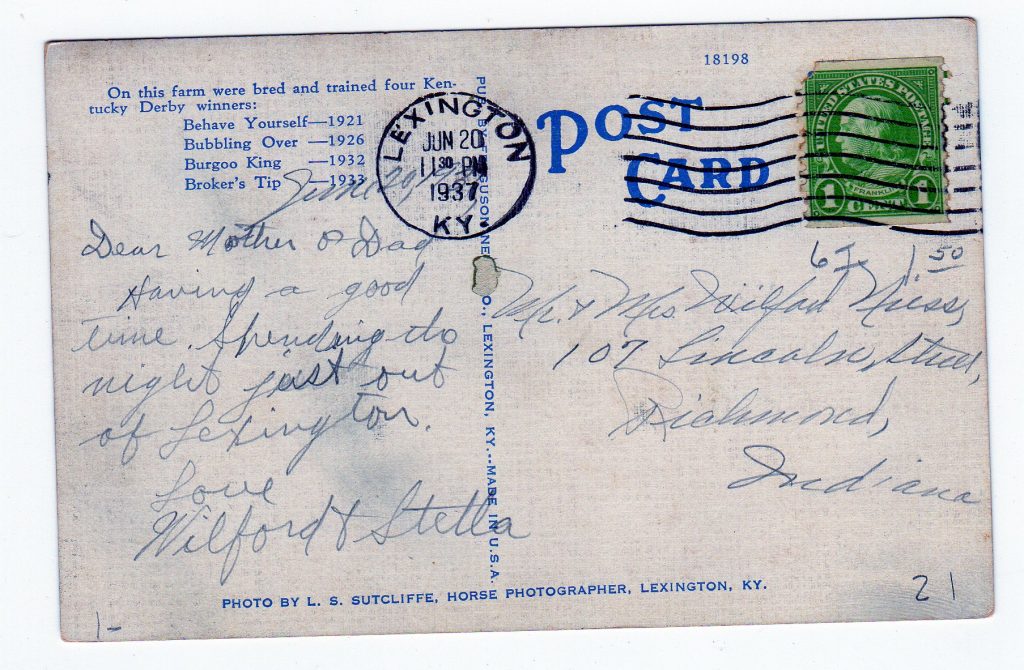 18198
On this farm were bred and trained four Ken-
tucky Derby winners:
Behave Yourself—1921
Bubbling Over —1926
Burgoo King —1932
Broker's Tip —1933
LEXINGTON
JUN 20
11 30 PM
1937
KY.
POST
CARD
UNITED STATES POSTAGE
FRANKLIN
1 CENT 1
June
Dear Mother & Dad
Having a good
time. Spending to
night just out
of Lexington.
Love
Wilford & Stella
1.50
Mr. & Mrs. Wilford
107 Lincoln Street,
Richmond,
Indiana
O., LEXINGTON, KY.--MADE IN U.S.A.
PHOTO BY L. S. SUTCLIFFE, HORSE PHOTOGRAPHER, LEXINGTON, KY.
21
1-